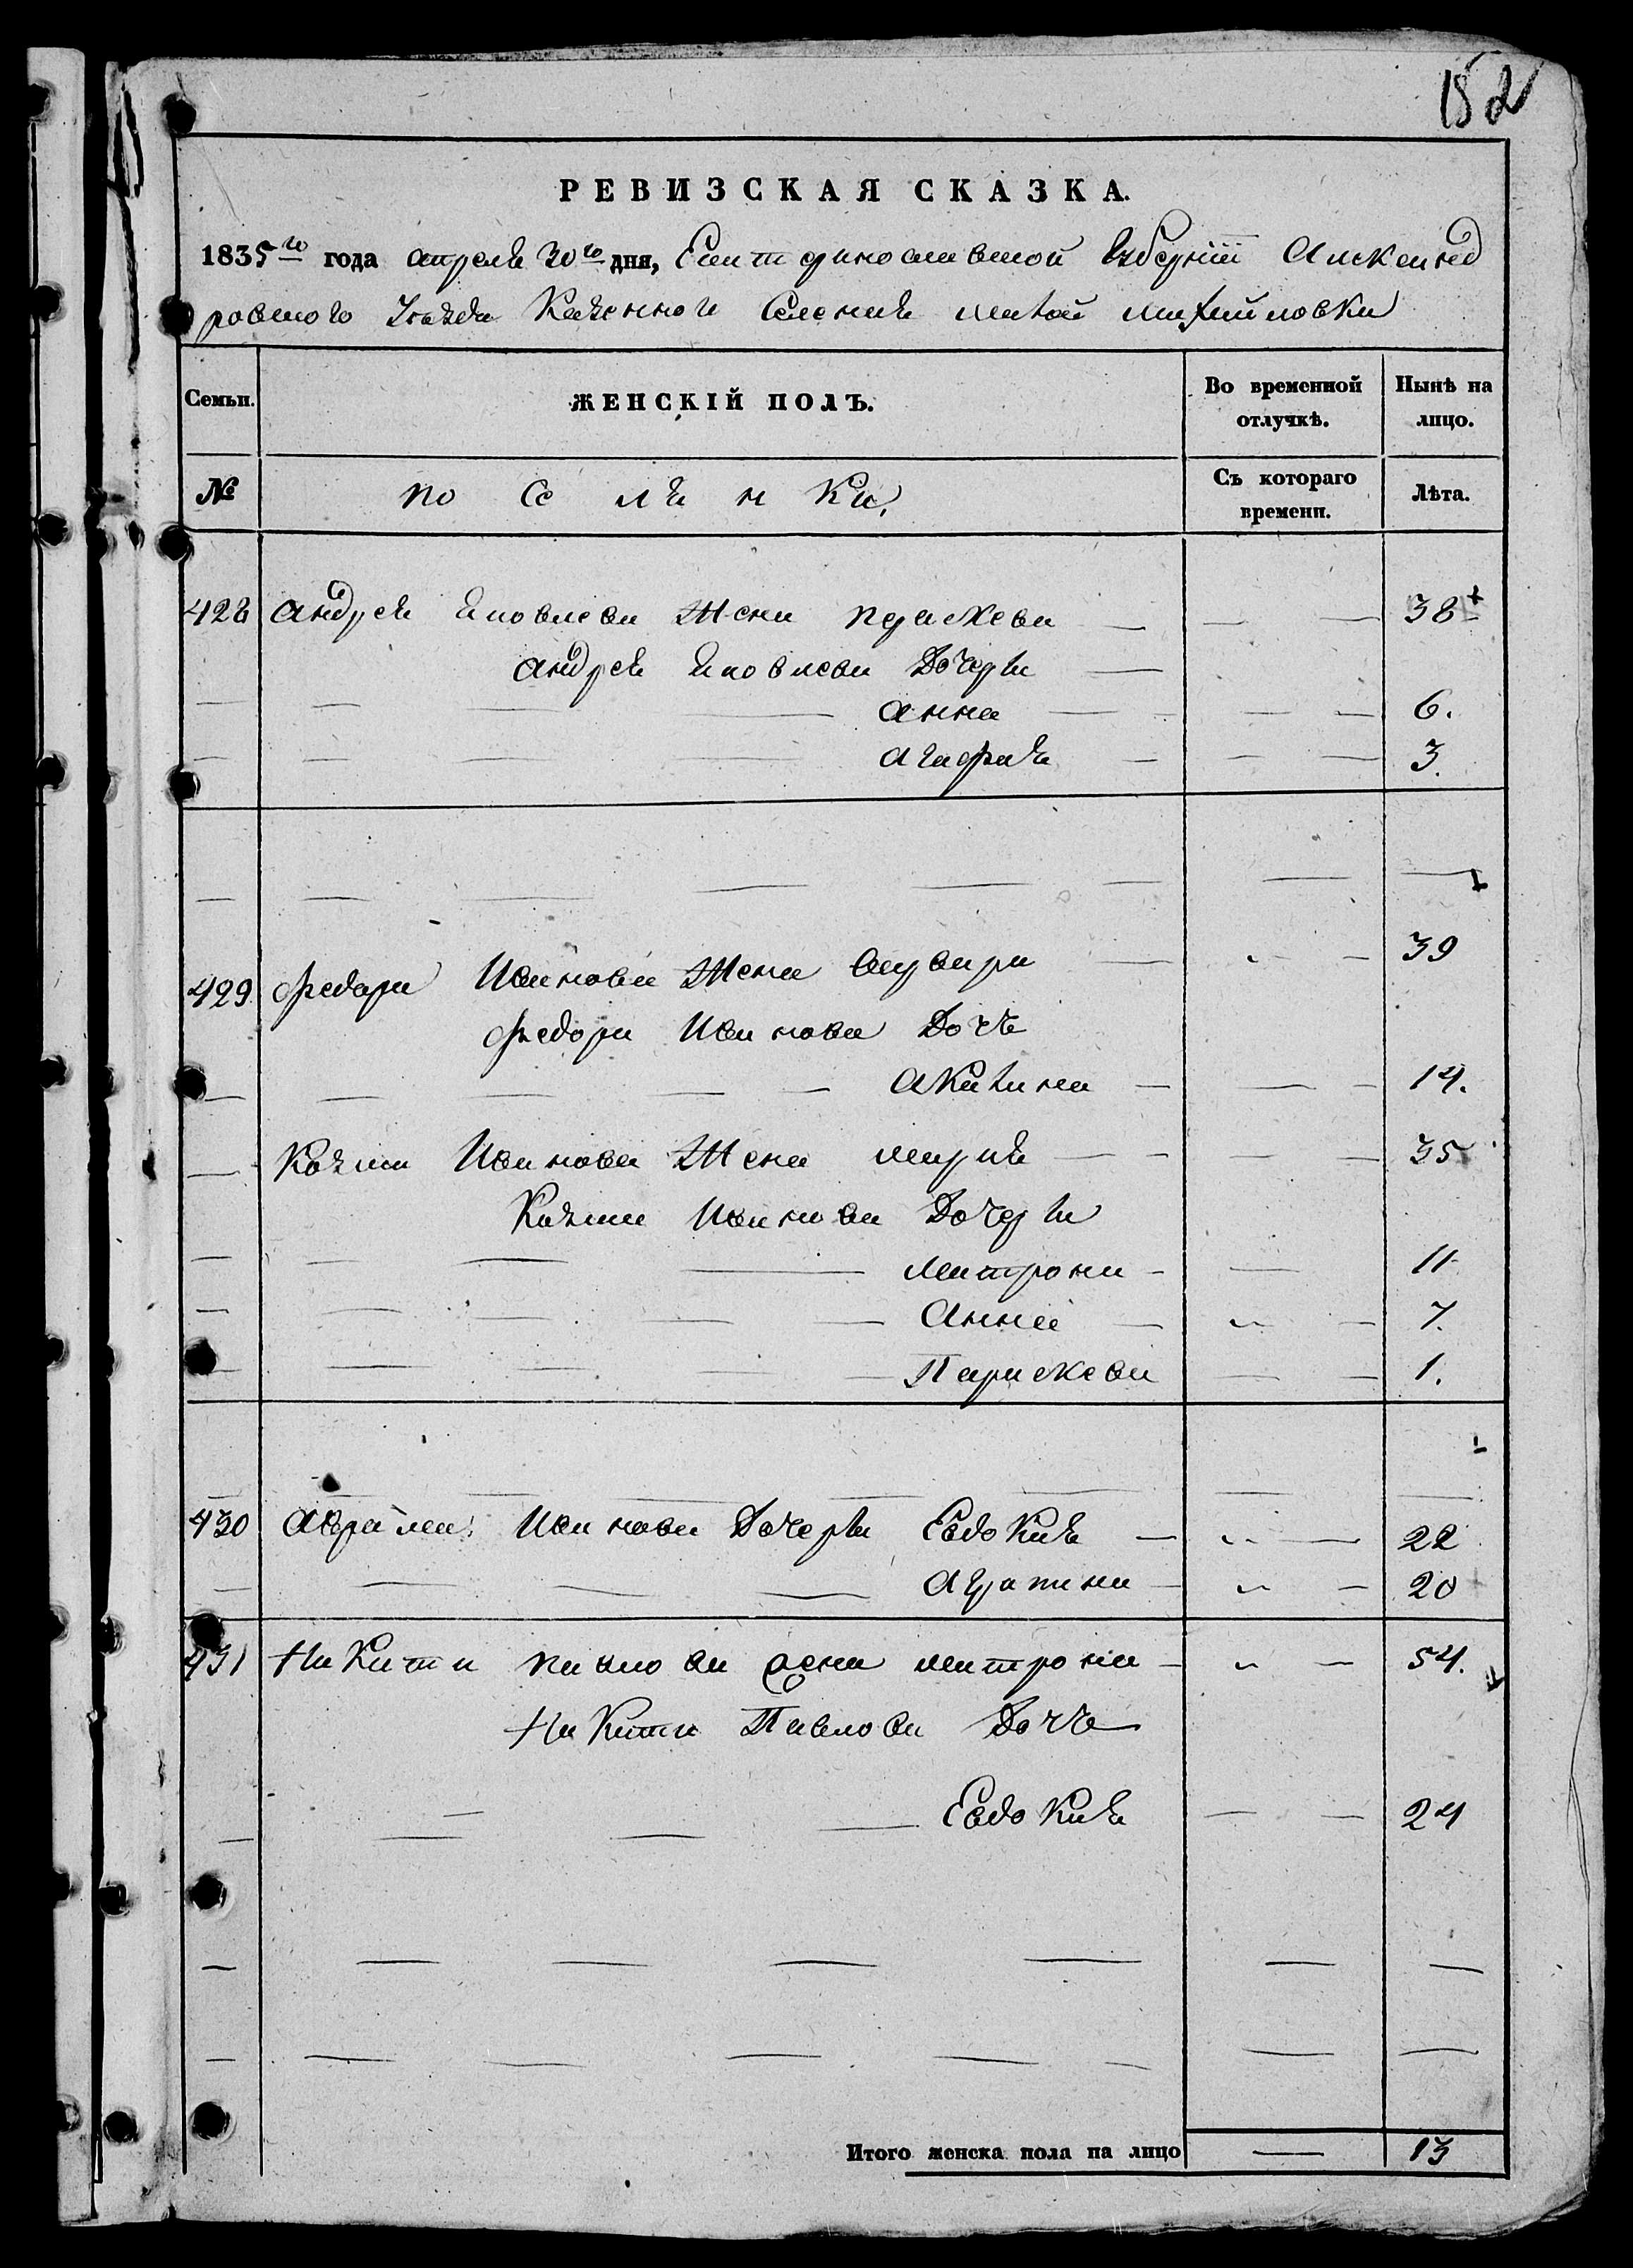 152
РЕВИЗСКАЯ СКАЗКА.
1835го года апреля 30го дня, Екатеринославской Губернiи Александ
ровского Уезда Казенного Селения малой михайловки
Семьи. ЖЕНСКІЙ ПОЛЪ. Во временной отлучкѣ. Нынѣ на лицо.
№ поселянки, Съ котораго времени. Лѣта.
428 андрея Яковлева Жена праскева — — — 38
андрея Яковлева Дочери —
— — — — анна — — — — 6.
— — — — агафия — — — 3.
— — — — — — — —
429 федара Иванова Жена варвара — — 39
федора Иванова Дочь
— — — — — акилина — — — 14.
— Козми Иванова Жена мария — — — — 35
Казми Иванова Дочери
— — — — матрона — — 11
— — — — — — анна — — 7.
— — — — — Параскева — — 1.
— — — — — — — —
430 аврама Иванова Дочери Евдокия — — 22
— — — — аграпина — — 20
431 Никити павлова жена матрона — — 54.
Никити Павлова Дочь
— — — — — Евдокия — — 24
— — — — — — —
— — — — — — — —
Итого женска пола на лицо — 13